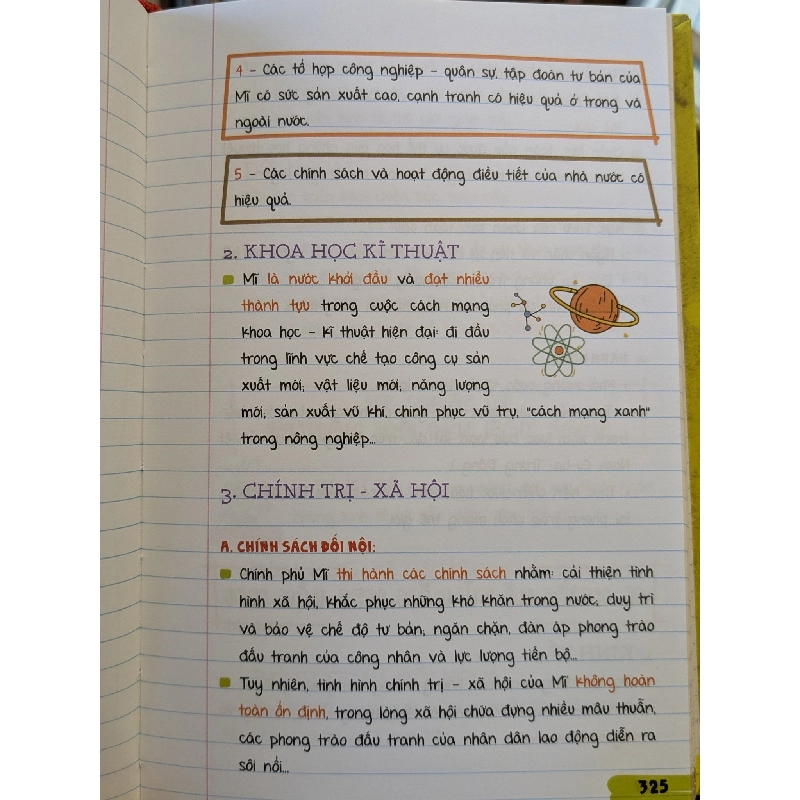 4 - Các tổ hợp công nghiệp - quân sự, tập đoàn tư bản của
Mĩ có sức sản xuất cao, cạnh tranh có hiệu quả ở trong và
ngoài nước.
5 - Các chính sách và hoạt động điều tiết của nhà nước có
hiệu quả.
2. KHOA HỌC KĨ THUẬT
Mĩ là nước khởi đầu và đạt nhiều
thành tựu trong cuộc cách mạng
khoa học - kĩ thuật hiện đại: đi đầu
trong lĩnh vực chế tạo công cụ sản
xuất mới; vật liệu mới; năng lượng
mới; sản xuất vũ khí, chinh phục vũ trụ, "cách mạng xanh"
trong nông nghiệp...
3. CHÍNH TRỊ - XÃ HỘI
A. CHÍNH SÁCH ĐỐI NỘI:
Chính phủ Mĩ thi hành các chính sách nhằm: cải thiện tình
hình xã hội, khắc phục những khó khăn trong nước; duy trì
và bảo vệ chế độ tư bản; ngăn chặn, đàn áp phong trào
đấu tranh của công nhân và lực lượng tiến bộ...
Tuy nhiên, tình hình chính trị - xã hội của Mĩ không hoàn
toàn ổn định, trong lòng xã hội chứa đựng nhiều mâu thuẫn,
các phong trào đấu tranh của nhân dân lao động diễn ra
sôi nổi...
325